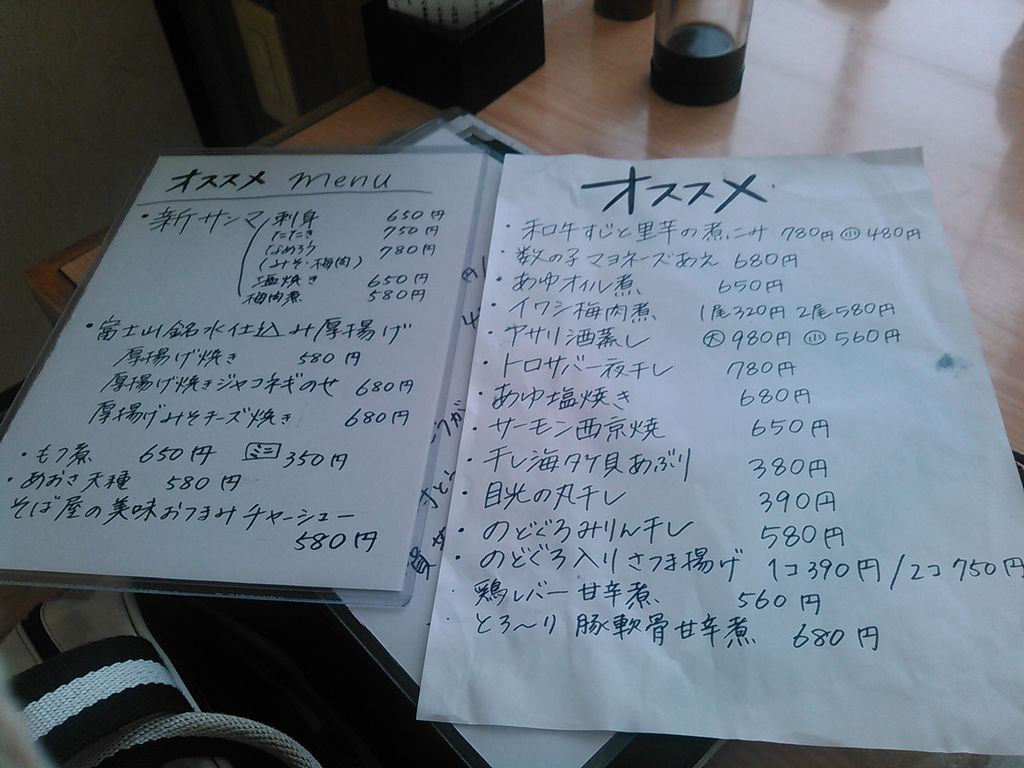 オススメ menu
・新サンマ 刺身 650円
たたき 750円
なめろう 780円
(みそ・梅肉)
塩焼き 650円
梅肉煮 580円
・富士山銘水仕込み厚揚げ
厚揚げ焼き 580円
厚揚げ焼きジャコネギのせ 680円
厚揚げみそチーズ焼き 680円
・もつ煮 650円 ミニ 350円
・あおさ天種 580円
そば屋の美味おつまみチャーシュー
580円
オススメ
・和牛すじと里芋の煮こみ 780円 小 480円
・数の子マヨネーズあえ 680円
・あゆオイル煮 650円
・イワシ梅肉煮 1尾320円 2尾580円
・アサリ酒蒸し 大 980円 小 560円
・トロサバ一夜干し 780円
・あゆ塩焼き 680円
・サーモン西京焼 650円
・干し海タケ貝あぶり 380円
・目光の丸干し 390円
・のどぐろみりん干し 580円
・のどぐろ入りさつま揚げ 1コ390円/2コ750円
・鶏レバー甘辛煮 560円
・とろ〜り豚軟骨甘辛煮 680円